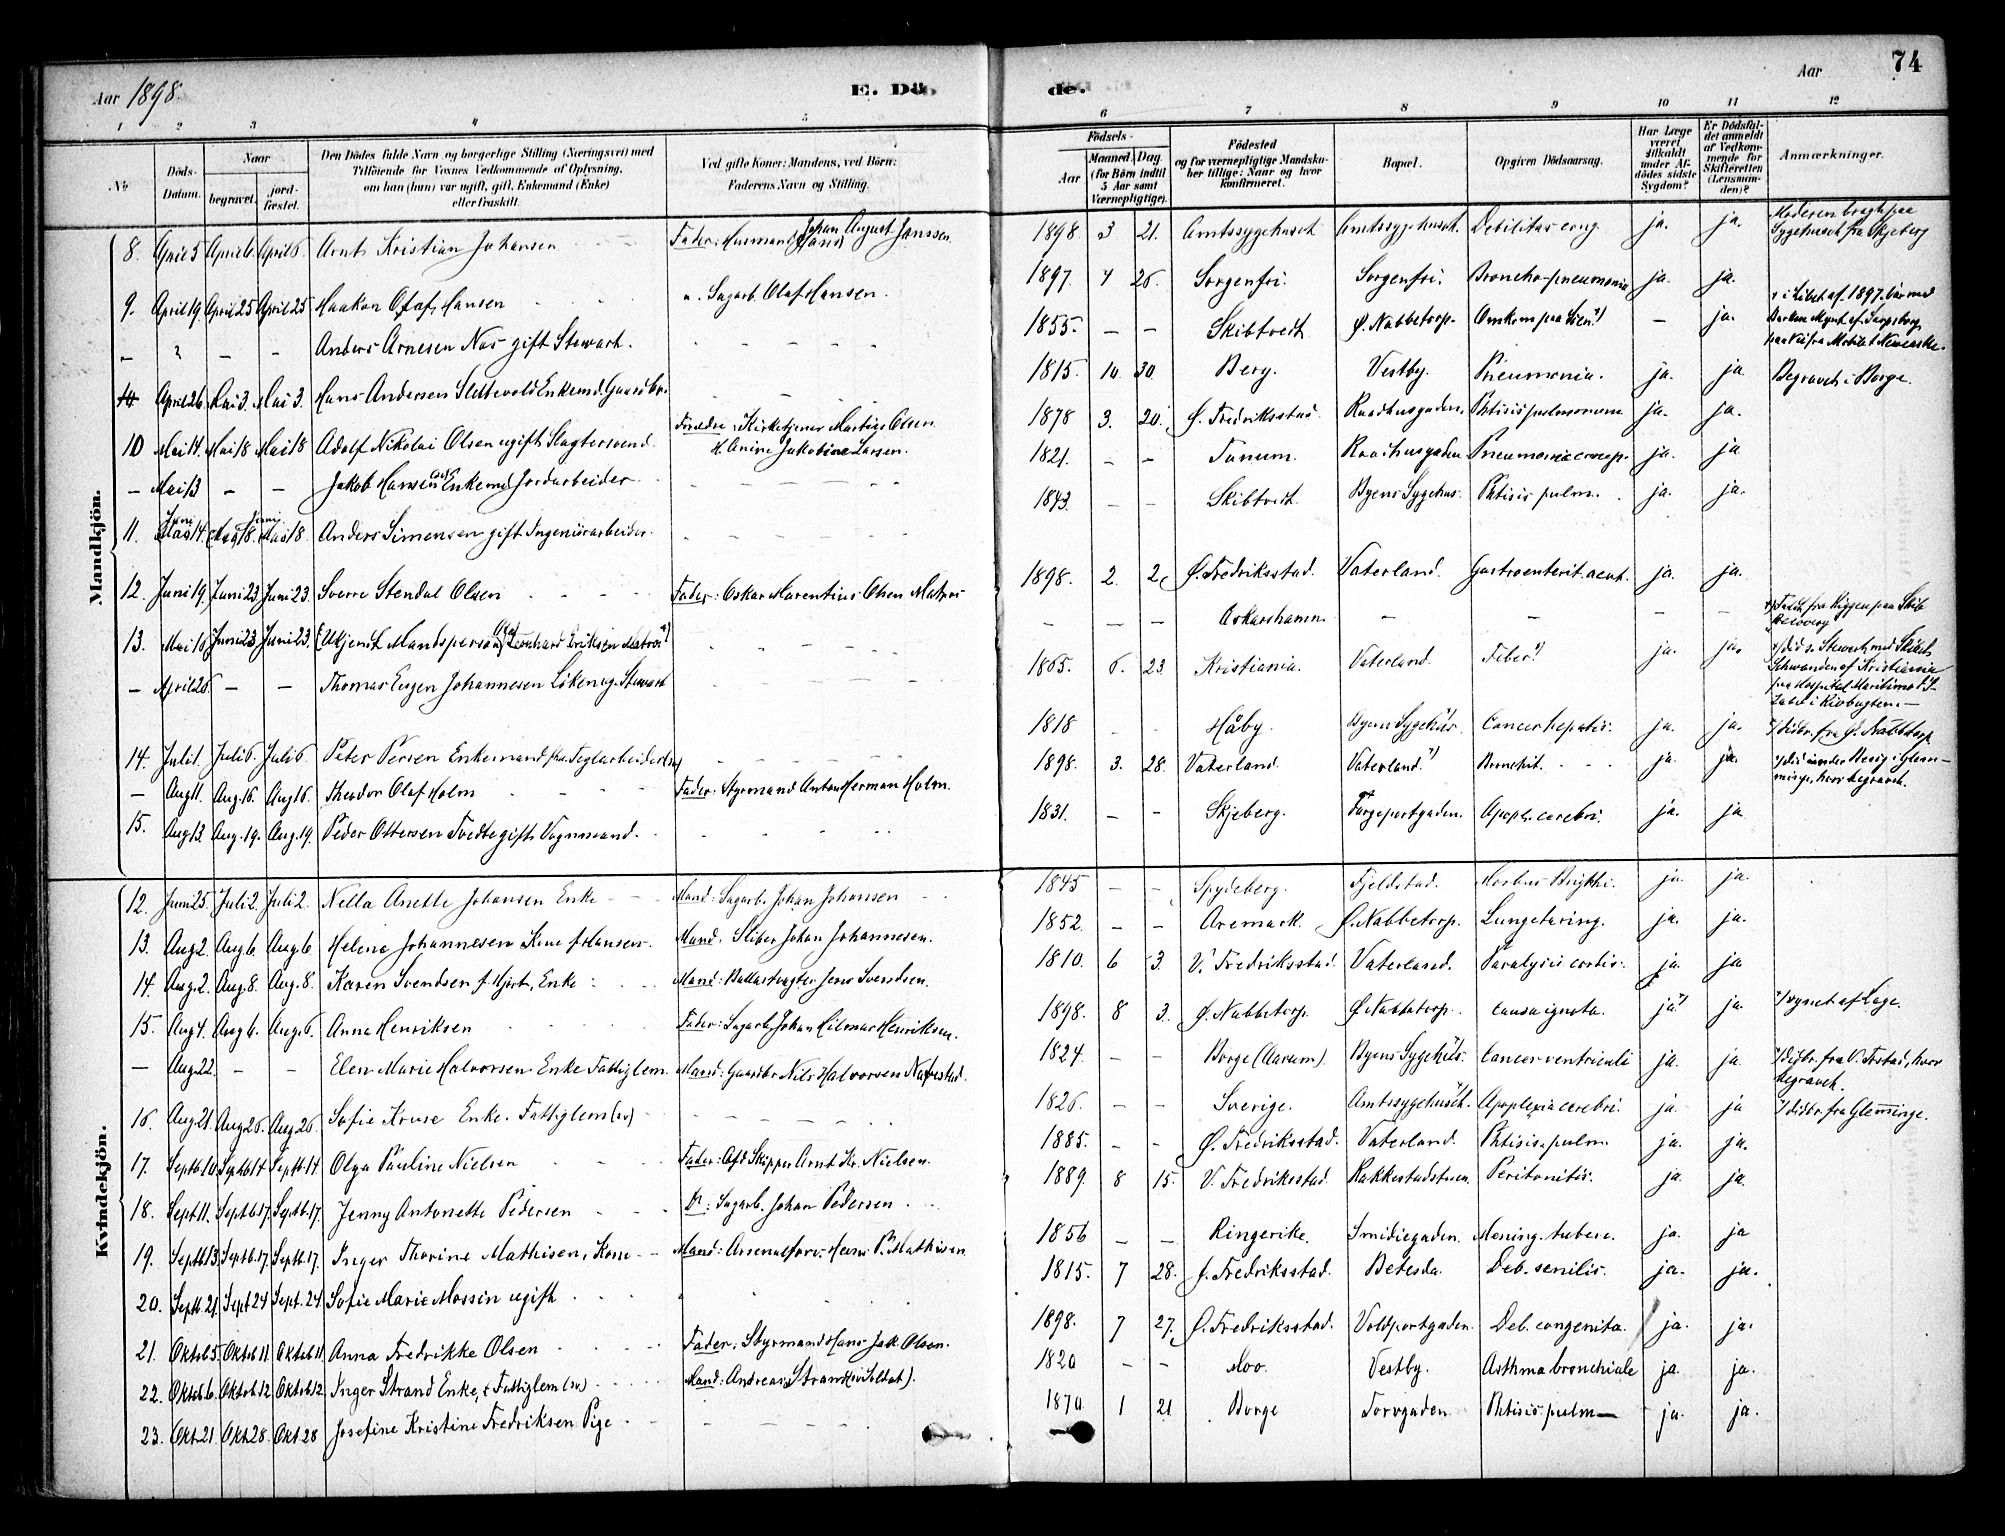 Aar 1898. E. Dö
de. Aar 74
1 2 3 4 5 6 7 8 9 10 11 12
No
Döds-Datum.
Naar
begravet.
jord-fæstet.
Den Dödes fulde Navn og borgerlige Stilling (Næringsvei) med
Tilföiende for Voxnes Vedkommende af Oplysning,
om han (hun) var ugift, gift, Enkemand (Enke)
eller fraskilt.
Ved gifte Koner: Mandens, ved Börn:
Faderens Navn og Stilling.
Födsels-
Aar
Maaned. Dag.
(for Börn indtil
5 Aar samt
Værnepligtige).
Födested
og for værnepligtige Mandska-
ber tillige: Naar og hvor
konfirmeret.
Bopæl.
Opgiven Dödsaarsag.
Har Læge
været
tilkaldt
under Af-
dödes sidste
Sygdom?
Er Dödsfal-
det anmeldt
af Vedkom-
mende for
Skifteretten
(Lensman-
den)?
Anmærkninger.
Mandkjön.
8. April 5 April 6. April 6. Arnt Kristian Johansen Fader: Husmand Johan August Janssen. 1898 3 21. Amtssygehuset Amtssygehuset. Debilitas cong. ja. ja. Moderen bragt paa Sygehuset fra Skjeberg
9. April 19 April 25 April 25 Haakon Olaf Hansen " Sagarb. Olaf Hansen. 1897. 4 26. Sorgenfri. Sorgenfri. Broncho-pneumonia ja. ja.
– – – Anders Arnesen Næs gift Stewart. 1855. – – Skibtvedt Ø. Nabbetorp. Omkom paa Söen – ja. i Löbet af 1897. Var med Barken Mynt af Sarpsborg,
10 April 26. Mai 3. Mai 3. Hans Andersen Slettevold Enkemd. Gaardbr. 1815. 10. 30. Berg. Vestby. Pneumonia. ja. ja Begravet i Borge.
10 Mai 14. Mai 18 Mai 18 Adolf Nikolai Olsen ugift Slagtersvend. Forældre: Kirketjener Martius Olsen. H. Anine Jakobine Larsen. 1878 3. 20. Ø. Fredriksstad. Raadhusgaden. Phtisis pulmonum ja. ja.
– Mai 13 – – Jakob Hansen Enkemd Jordarbeider 1821. – – Tunum. Raadhusgaden Pneumonia croup. ja. ja
11. Juni 14. Juni 18. Juni 18. Anders Simensen gift Ingeniörarbeider. 1843. – – Skibtvedt. Byens Sygehus. Phtisis pulm. ja. ja.
12. Juni 19. Juni 23. Juni 23. Sverre Stendal Olsen Fader: Oskar Marentius Olsen Matros 1898. 2. 2. Ø. Fredriksstad. Vaterland. Gastroenterit. acut. ja. ja.
13. Mai 16. Juni 23 Juni 23. Ukjendt Mandsperson Leonhard Eriksen Matros – – – Oskarshamn. – – – – Faldt fra Riggen paa Skib
– April 26. – – Thomas Eugen Johannesen Löken ug. Stewart 1865. 6. 23 Kristiania. Vaterland. Feber ja. ja. död s. Stewart med Skibet Schwanden af Kristiania paa Hospital Maritimo
14. Juli 1. Juli 6. Juli 6. Peter Persen Enkemand fhv. Teglarbeider 1818 – – Håby. Byens Sygehus. Cancer hepatis. ja. ja. distr. fra Ø. Nabbetorp
– Aug 11. Aug. 16. Aug 16. Theodor Olaf Holm Fader: Styrmand Anton Herman Holm. 1898. 3. 28. Vaterland Vaterland. Bronchit. ja. ja. död under Besög i Glem-
minge, hvor begravet.
15. Aug 13. Aug. 19. Aug. 19. Peder Ottersen Tvedte gift Vognmand. 1831. – – Skjeberg. Færgeportgaden. Apopl. cerebri. ja. ja
Kvindekjön.
12. Juni 25. Juli 2. Juli 2. Nella Anette Johansen Enke Mand: Sagarb. Johan Johansen 1845 – – Spydeberg. Fjeldstad. Morbus Brightii. ja. ja.
13. Aug 2. Aug 6. Aug 6. Helene Johannesen Kone f. Hansen. Mand: Sliber Johan Johannesen. 1852. – – Aremark. Ø. Nabbetorp. Lungetæring. ja. ja.
14. Aug. 2. Aug. 8. Aug. 8. Karen Svendsen f. Hjort, Enke Mand: Ballastvogter Jens Svendsen. 1810. 6 3. V. Fredriksstad. Vaterland. Paralysis cordis. ja. ja
15. Aug 4. Aug 6. Aug. 6. Anna Henriksen Fader: Sagarb. Johan Hilmar Henriksen. 1898. 8 3. Ø. Nabbetorp. Ø. Nabbetorp. causa ignota. ja ja. synet af Læge.
– Aug 22. – – Elen Marie Halvorsen Enke Fattiglem. Mand: Gaardbr. Nils Halvorsen Næfvestad. 1824. – – Borge (Aarum). Byens Sygehus. Cancer ventriculi ja. ja distr. fra V. Frstad, hvor begravet.
16. Aug 21. Aug 26. Aug 26 Sofie Kruse Enke. Fattiglem 1826. – – Sverige. Amtssygehuset. Apoplexia cerebri. ja. ja distr. fra Glemminge.
17. Septb. 10 Septb 14 Septb. 14 Olga Pauline Nielsen Fader: Afd Skipper Arnt Kr. Nielsen. 1885. – – Ø. Fredriksstad. Vaterland. Phtisis pulm. ja. ja.
18. Sept 11. Septb 17. Septb. 17. Jenny Antonette Pedersen Sagarb. Johan Pedersen 1889. 8 15. V. Fredriksstad. Rakkestadstuen. Peritonitis. ja. ja.
19. Septb 13. Septb. 17. Septb. 17. Inger Thorine Mathisen, Kone Mand: Arsenalforv. Hans P. Mathisen 1856 – – Ringerike. Smidiegaden. Mening. tuberc. ja. ja
20. Septb. 21. Sept 24 Sept. 24. Sofie Marie Mossin ugift 1815. 7 28. Ø. Fredriksstad. Betesda. Deb. senilis. ja. ja.
21. Oktob 5. Oktob 11. Oktob 11. Anna Fredrikke Olsen Fader: Styrmand Hans Jak. Olsen. 1898. 7 27. Ø. Fredriksstad. Voldportgaden. Deb. congenita. ja. ja.
22. Oktob 6. Oktob. 12. Oktob. 12. Inger Strand Enke, Fattiglem Mand: Andreas Strand (Soldat). 1820 – – Moo. Vestby. Asthma bronchiale ja. ja.
23. Okt. 21. Okt. 28. Okt. 28 Josefine Kristine Fredriksen Pige 1870. 1 21 Borge Torvgaden. Phtisis pulm. ja. ja.